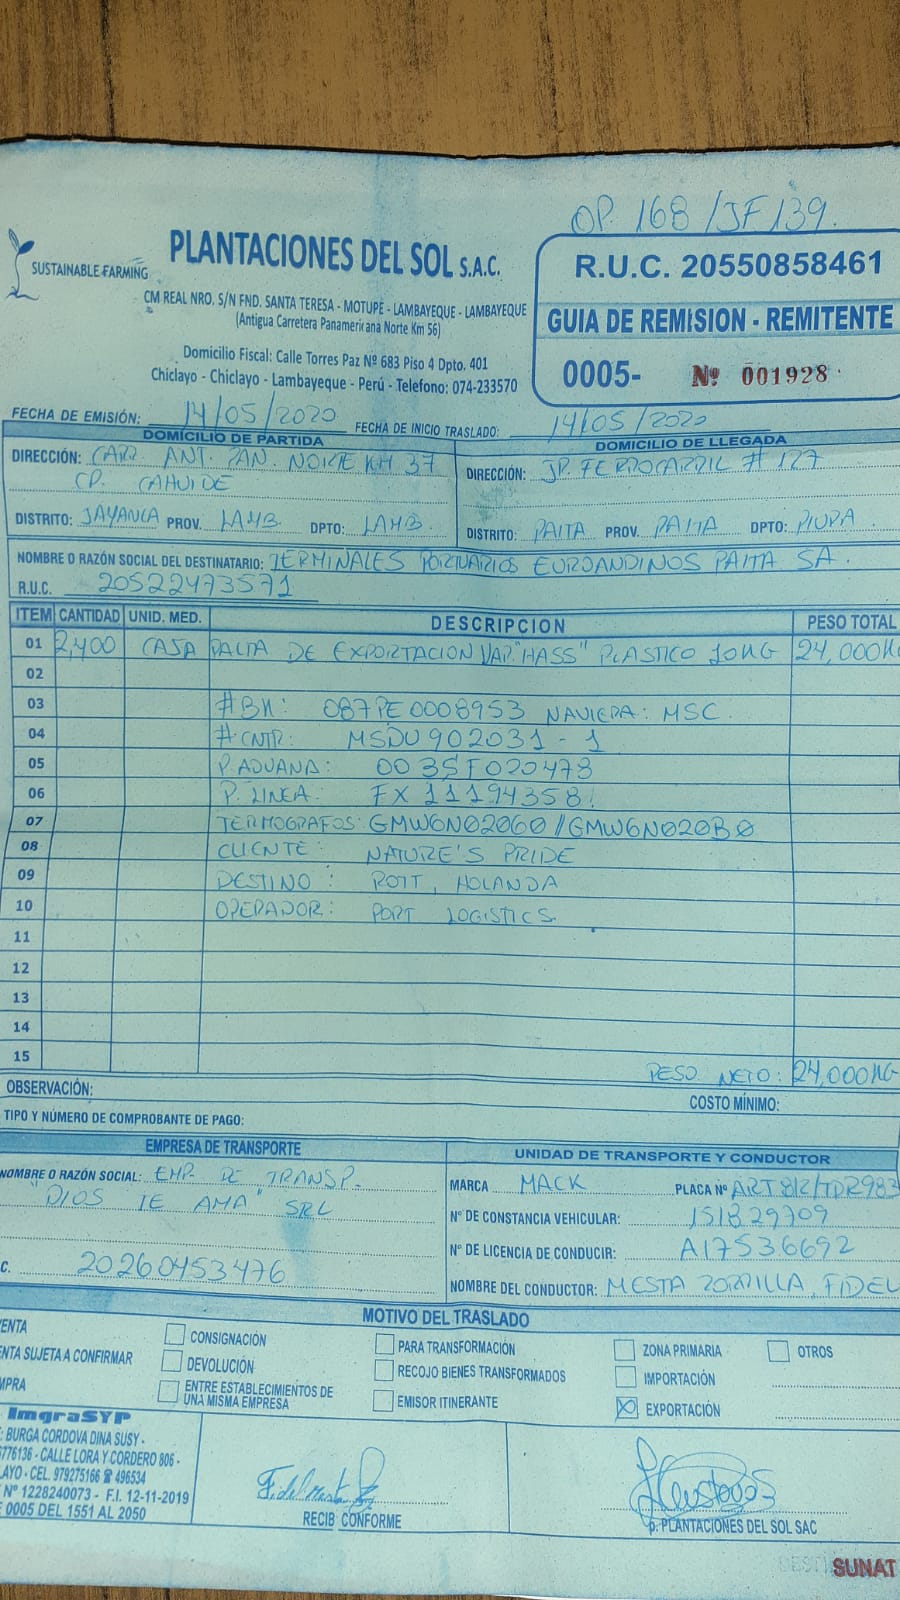 OP. 168 / JF 139.
SUSTAINABLE FARMING
PLANTACIONES DEL SOL S.A.C.
CM REAL NRO. S/N FND. SANTA TERESA - MOTUPE - LAMBAYEQUE - LAMBAYEQUE
(Antigua Carretera Panamericana Norte Km 56)
Domicilio Fiscal: Calle Torres Paz Nº 683 Piso 4 Dpto. 401
Chiclayo - Chiclayo - Lambayeque - Perú - Telefono: 074-233570
R.U.C. 20550858461
GUIA DE REMISION - REMITENTE
0005- Nº 001928
FECHA DE EMISIÓN: 14/05/2020 FECHA DE INICIO TRASLADO: 14/05/2020
DOMICILIO DE PARTIDA
DIRECCIÓN: CARR. ANT. PAN. NORTE KM 37
CP. CAHUIDE
DISTRITO: JAYANCA PROV. LAMB. DPTO: LAMB.
DOMICILIO DE LLEGADA
DIRECCIÓN: JR. FERROCARRIL # 127
DISTRITO: PAITA PROV. PAITA DPTO: PIURA
NOMBRE O RAZÓN SOCIAL DEL DESTINATARIO: TERMINALES PORTUARIOS EUROANDINOS PAITA SA.
R.U.C. 20522473571
ITEM CANTIDAD UNID. MED. DESCRIPCION PESO TOTAL
01 2,400 CAJA PALTA DE EXPORTACION VAR. "HASS" PLASTICO 10KG 24,000K
02
03 #BK: 087PE0008953 NAVIERA: MSC.
04 #CNTR: MSDU 902031 - 1
05 P. ADUANA: 0035F020473
06 P. LINEA: FX 11194358.
07 TERMOGRAFOS: GMW6N02060 // GMW6N020B0
08 CLIENTE: NATURE'S PRIDE
09 DESTINO: ROTT, HOLANDA
10 OPERADOR: PORT LOGISTICS.
11
12
13
14
15
PESO NETO: 24,000KG
OBSERVACIÓN:
COSTO MÍNIMO:
TIPO Y NÚMERO DE COMPROBANTE DE PAGO:
EMPRESA DE TRANSPORTE
NOMBRE O RAZÓN SOCIAL: EMP. DE TRANSP.
"DIOS TE AMA" SRL
C. 20260453476
UNIDAD DE TRANSPORTE Y CONDUCTOR
MARCA MACK PLACA Nº ART812/TDR983
N° DE CONSTANCIA VEHICULAR: 151829709
N° DE LICENCIA DE CONDUCIR: A17536692
NOMBRE DEL CONDUCTOR: MESTA ZORRILLA, FIDEL
MOTIVO DEL TRASLADO
ENTA
NTA SUJETA A CONFIRMAR
MPRA
CONSIGNACIÓN
DEVOLUCIÓN
ENTRE ESTABLECIMIENTOS DE
UNA MISMA EMPRESA
PARA TRANSFORMACIÓN
RECOJO BIENES TRANSFORMADOS
EMISOR ITINERANTE
ZONA PRIMARIA
IMPORTACIÓN
EXPORTACIÓN
OTROS
ImgraSYP
: BURGA CORDOVA DINA SUSY -
776136 - CALLE LORA Y CORDERO 806 -
LAYO - CEL. 979275166 ☎ 496534
Nº 1228240073 - F.I. 12-11-2019
0005 DEL 1551 AL 2050
RECIB CONFORME
p. PLANTACIONES DEL SOL SAC
DESTI
SUNAT